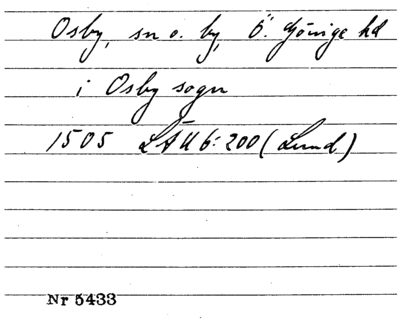 Osby, sn o. by, Ö. Göinge hd
i Osby sogn
1505 LÄU 6:200 (Lund)
Nr 5433